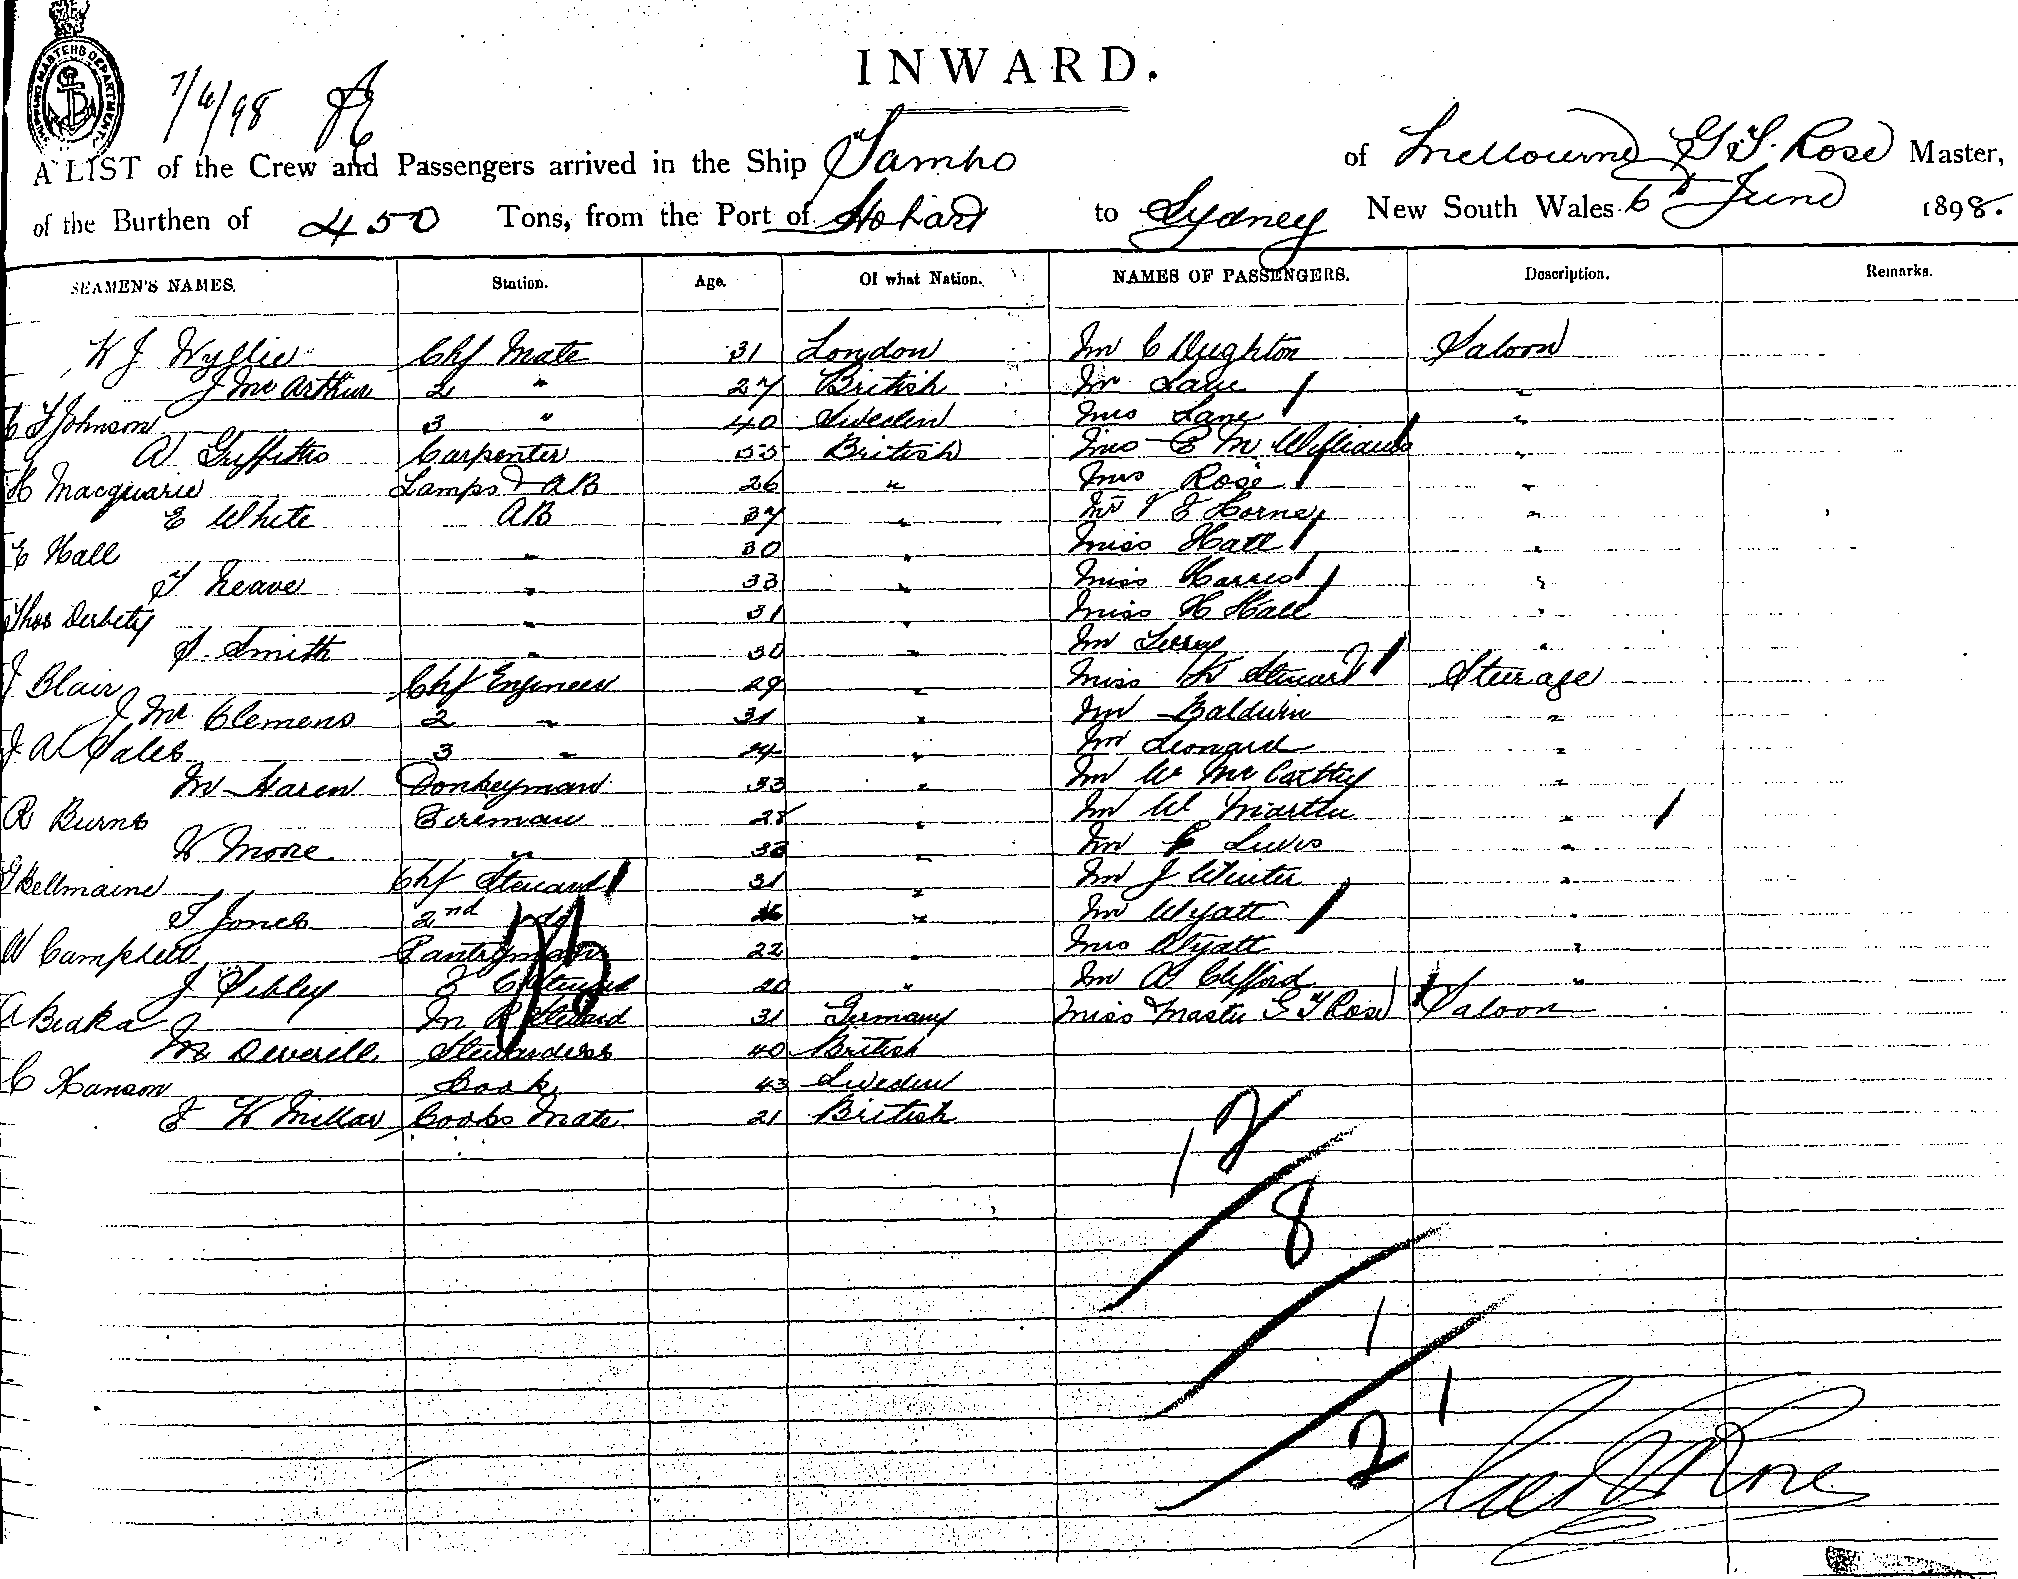 SHIPPING MASTERS DEPARTMENT.
7/6/98
INWARD.
A LIST of the Crew and Passengers arrived in the Ship Tambo of Melbourne G. S. Rose Master,
of the Burthen of 450 Tons, from the Port of Hobart to Sydney New South Wales 6th June 1898.
SEAMEN'S NAMES. Station. Age. Of what Nation. NAMES OF PASSENGERS. Description. Remarks.
W J Wyllie Chf Mate 31 London Mr C Deighton Saloon
J McArthur 2 " 27 British Mr Lane "
C F Johnson 3 " 40 Sweden Mrs Lane "
A Griffiths Carpenter 55 British Mrs E M Williams "
H Macquarie Lamps & AB 26 " Mrs Rose "
E White AB 37 " E Horne "
E Hall " 30 " Miss Hall "
T Neave " 33 " Miss Harris "
Thos " 31 " Miss H Hall "
S. Smith " 30 " Mr "
J Blair Chf Engineer 29 " Miss K Stewart Steerage
J McClemens 2 " 31 " Mr Baldwin "
J A Sales 3 " 24 " Mr Leonard "
M Haren Donkeyman 33 " Mr W McCarthy "
R Burns Fireman 28 " Mr W Martin "
W Moore " 33 " Mr Lewis "
Bellmaine Chf Steward 31 " Mr J Winter "
T Jones 2nd do " Mr Wyatt "
W Campbell Pantryman 22 " Mrs Wyatt "
J Sibley Steward 20 " Mr A Clifford "
A Beaka M R Steward 31 Germany Miss & Master G S Rose Saloon
M Deverell Stewardess 40 British
C Hanson Cook 43 Sweden
J W Millar Cooks Mate 21 British
12
8
1
1
2
Geo S Rose